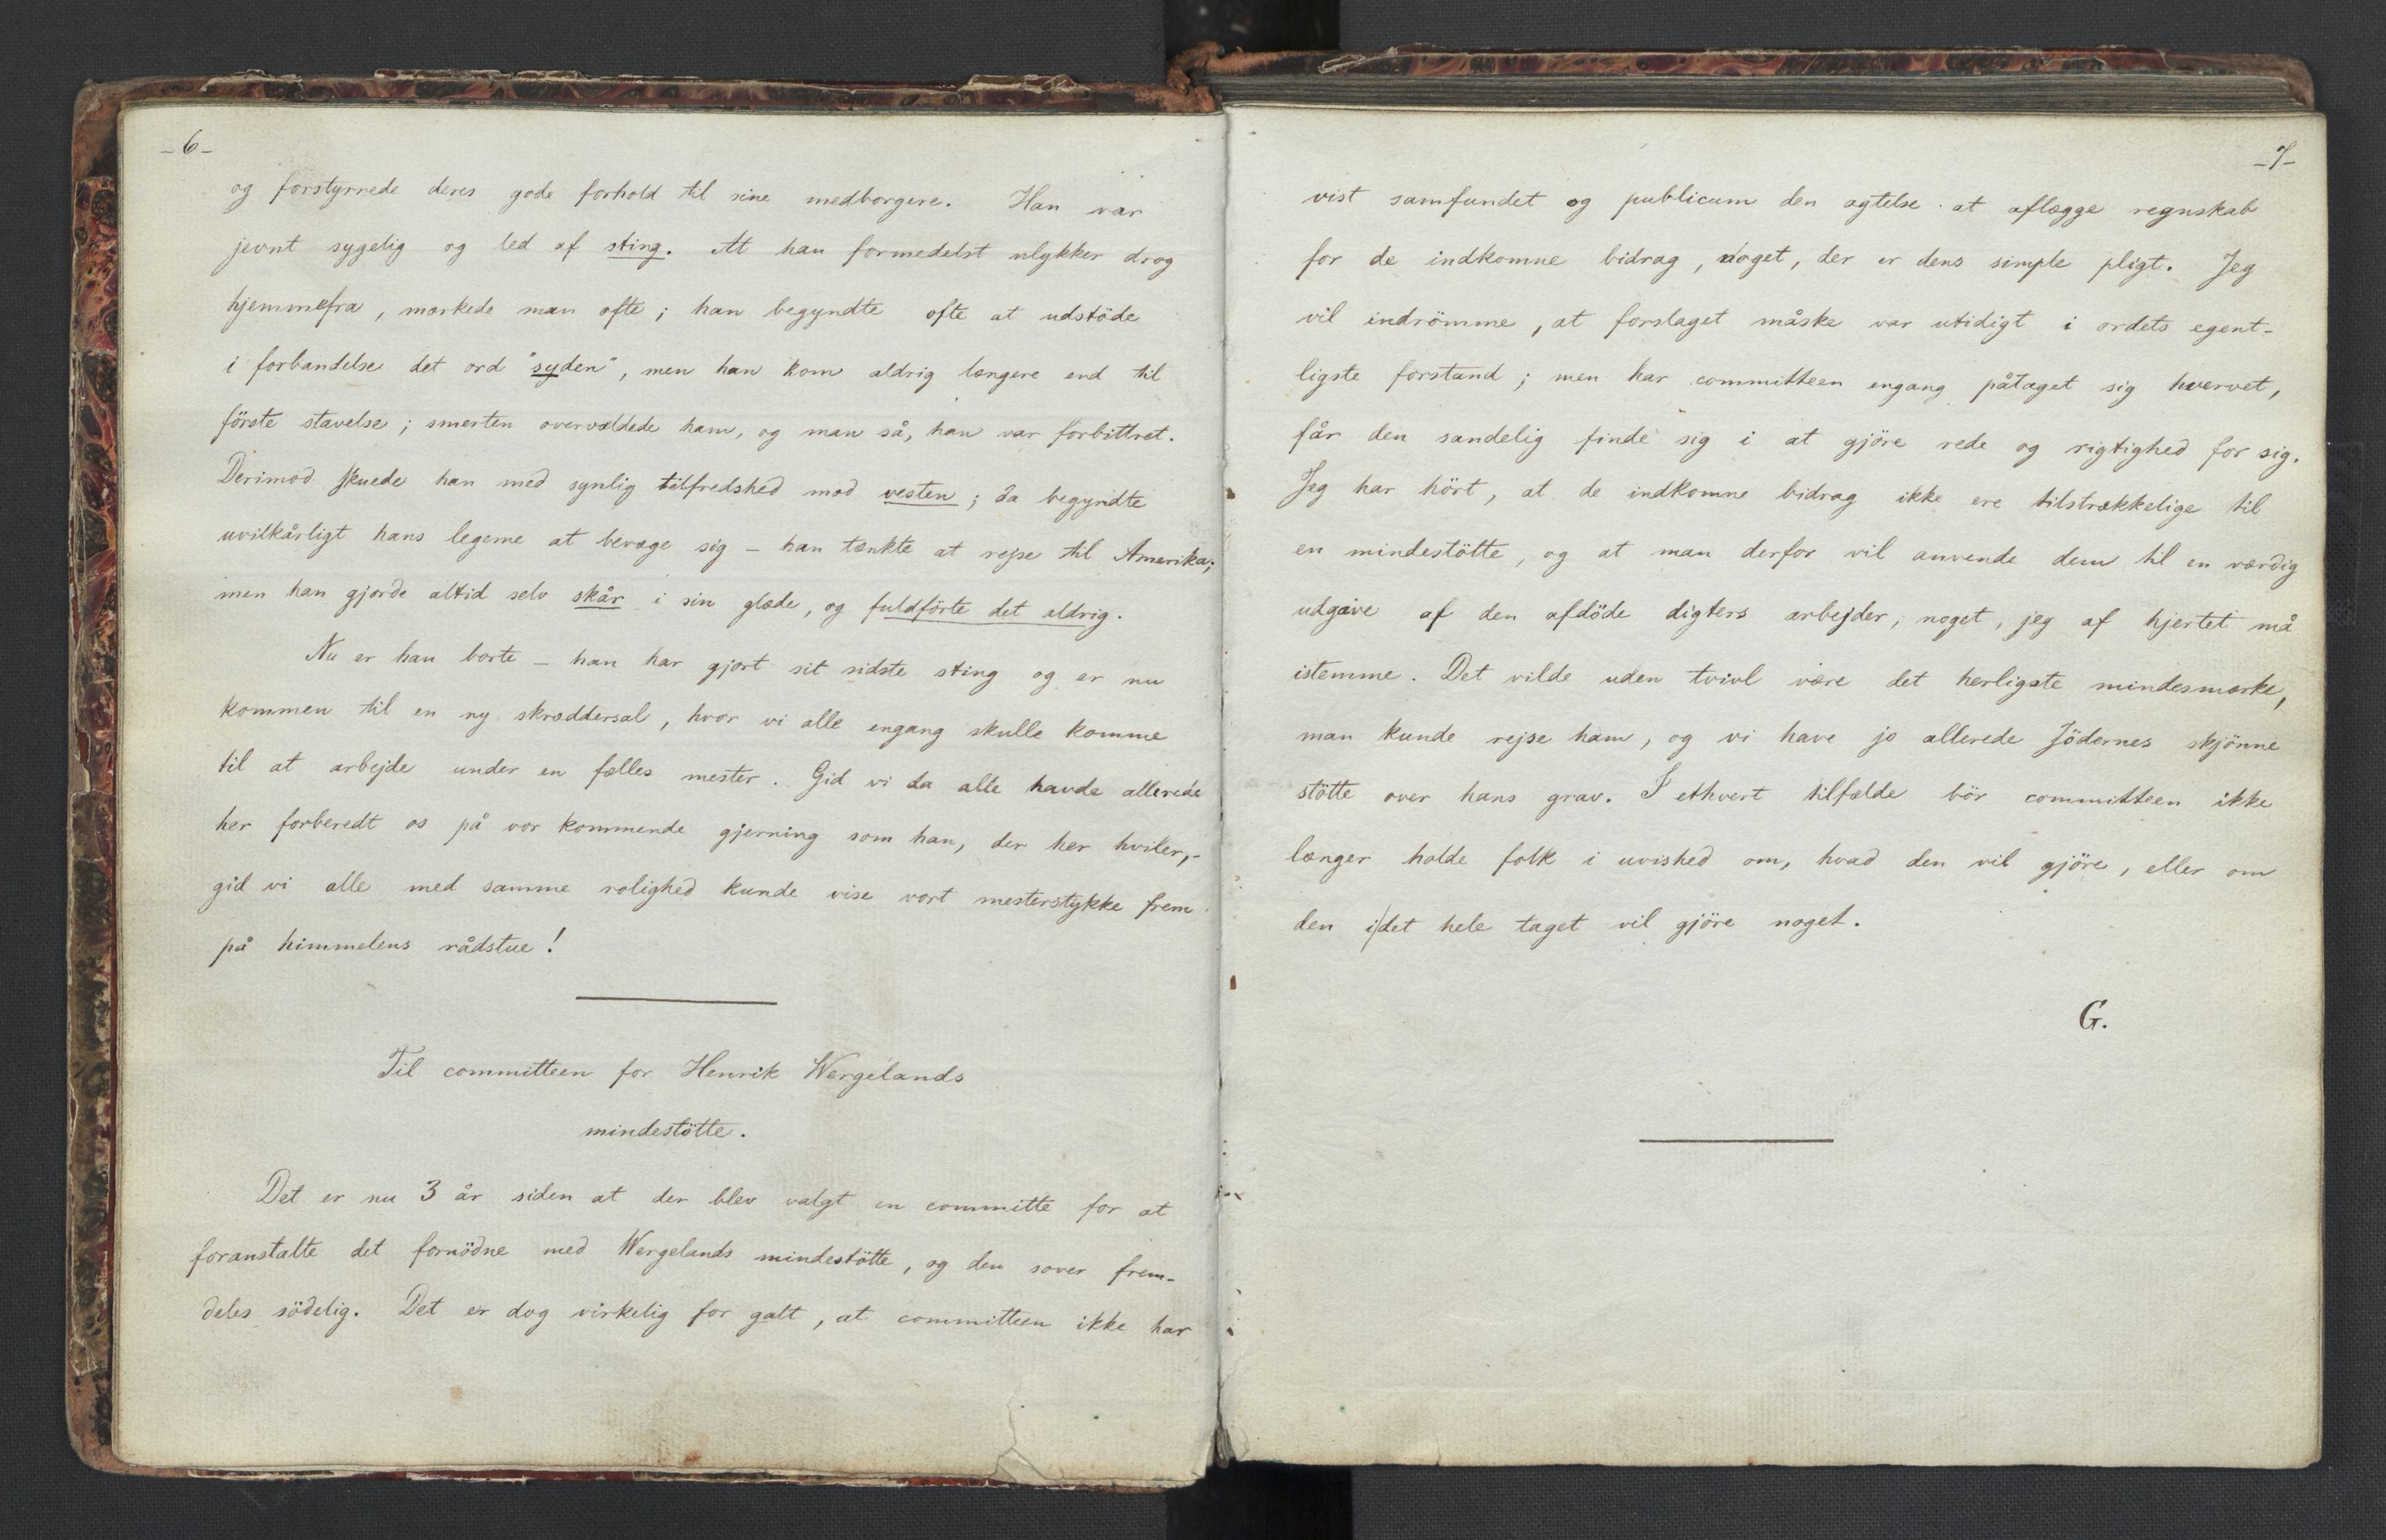 -6-
og forstyrrede deres gode forhold til sine medborgere. Han var
jevnt sygelig og led af sting. At han formedelst ulykker drog
hjemmefra, mærkede man ofte; han begyndte ofte at udstöde
i forbandelse det ord "syden", men han kom aldrig længere end til
förste stavelse; smerten overvældede ham, og man så, han var forbittret.
Derimod skuede han med synlig tilfredshed mod vesten; da begyndte
uvilkårligt hans legeme at bevæge sig – han tænkte at rejse til Amerika;
men han gjorde altid selv skår i sin glæde, og fuldförte det aldrig.
Nu er han borte – han har gjort sit sidste sting og er nu
kommen til en ny skræddersal, hvor vi alle engang skulle komme
til at arbejde under en fælles mester. Gid vi da alle havde allerede
her forberedt os på vor kommende gjerning som han, der her hviler,-
gid vi alle med samme rolighed kunde vise vort mesterstykke frem
på himmelens rådstue!
Til committeen for Henrik Wergelands
mindestötte.
Det er nu 3 år siden at der blev valgt en committe for at
foranstalte det fornödne med Wergelands mindestötte, og den sover frem-
deles södelig. Det er dog virkelig for galt, at committeen ikke har
-7-
vist samfundet og publicum den agtelse at aflægge regnskab
for de indkomne bidrag, noget, der er dens simple pligt. Jeg
vil indrömme, at forslaget måske var utidigt i ordets egent-
ligste forstand; men har committeen engang påtaget sig hvervet,
får den sandelig finde sig i at gjöre rede og rigtighed for sig.
Jeg har hört, at de indkomne bidrag ikke ere tilstrækkelige til
en mindestötte, og at man derfor vil anvende dem til en værdig
udgave af den afdöde digters arbejder, noget, jeg af hjertet må
istemme. Det vilde uden tvivl være det herligste mindesmærke,
man kunde rejse ham, og vi have jo allerede Jödernes skjönne
stötte over hans grav. I ethvert tilfælde bör committeen ikke
længer holde folk i uvished om, hvad den vil gjöre, eller om
den i det hele taget vil gjöre noget.
G.